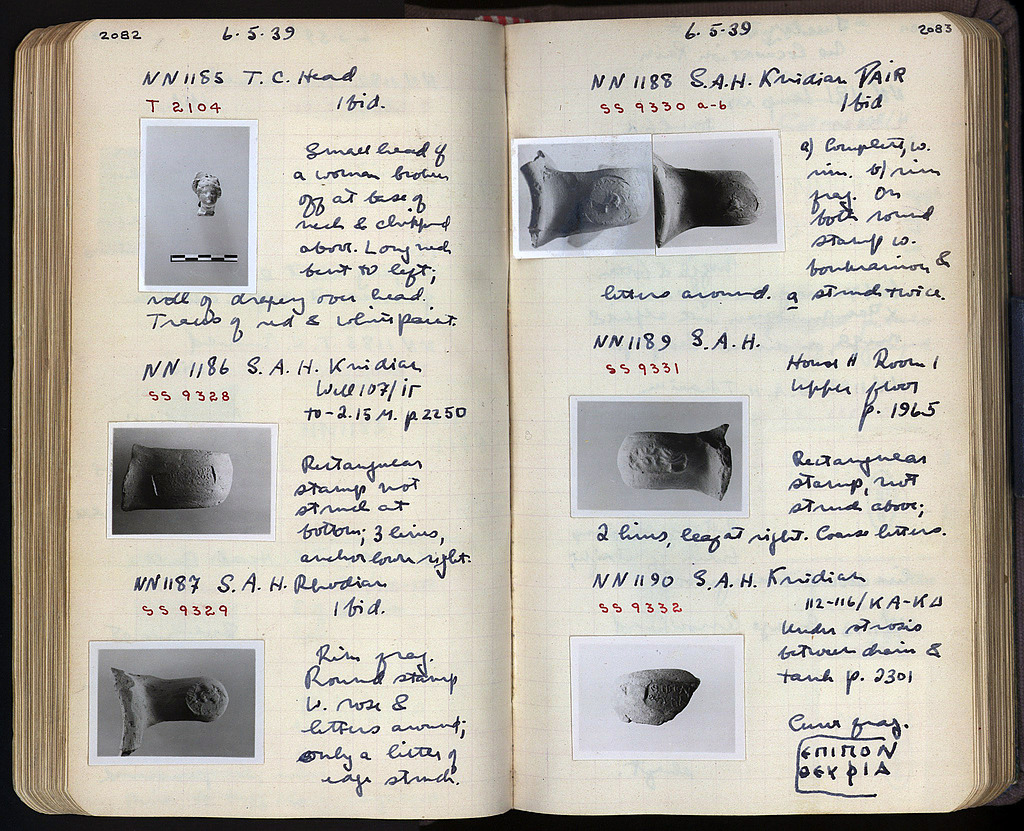 2082
6.5.39
NN1185 T.C. Head
T 2104
Ibid.
Small head of
a woman broken
off at base of
neck & chipped
above. Long neck
bent to left;
roll of drapery over head.
Traces of red & white paint.
NN 1186 S.A.H. Knidian
SS 9328
Well 107/
to -2.15 M. p 2250
Rectangular
stamp not
struck at
bottom; 3 lines,
anchor lower right.
NN1187 S.A.H. Rhodian
SS 9329
Ibid.
Rim frag.
Round stamp
w. rose &
letters around;
only a little of
edge struck.
6.5.39
2083
NN 1188 S.A.H. Knidian PAIR
SS 9330 a-b
Ibid
a) Complete, w.
rim. b) rim
frag. On
both round
stamp w.
boukranion &
letters around. a struck twice.
NN1189 S.A.H.
SS 9331
House H Room 1
Upper floor
p. 1965
Rectangular
stamp, not
struck above;
2 lines, leaf at right. Coarse letters.
NN1190 S.A.H. Knidian
SS 9332
112-116/ΚΑ-ΚΔ
Under strosis
between drain &
tank p. 2301
Curve frag.
ΕΠΙΠΟΝ
ΘΕΥΦΙΔ